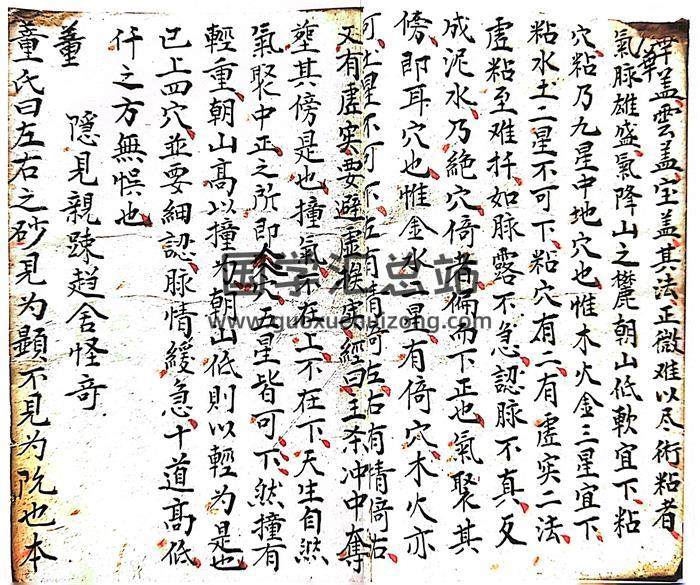 蓋雲蓋宝蓋其法正微难以尽術粘者
氣脉雄盛氣降山之麓朝山低軟宜下粘
穴粘乃九星中地穴也惟木火金三星宜下
粘水土二星不可下粘穴有二有虚实二法
虚粘至难扦如脉露不急認脉不真反
成泥水乃絶穴倚者偏而下正也氣聚其
傍即耳穴也惟金水二星有倚穴木火亦
可土星不可下左有情倚左右有情倚右
又有虚实要避虚俟实經曰主杀冲中奪
堂其傍是也撞氣不在上不在下天生自然
氣聚中正之所即人穴五星皆可下然撞有
輕重朝山高以撞为朝山低則以輕为是也
已上四穴並要細認脉情緩急十道高低
仟之方無悞也
董
隠見親踈趋舍怪奇
童氏曰左右之砂見为顕不見为阮也本
国学汇总站
www.guoxuehuizong.com